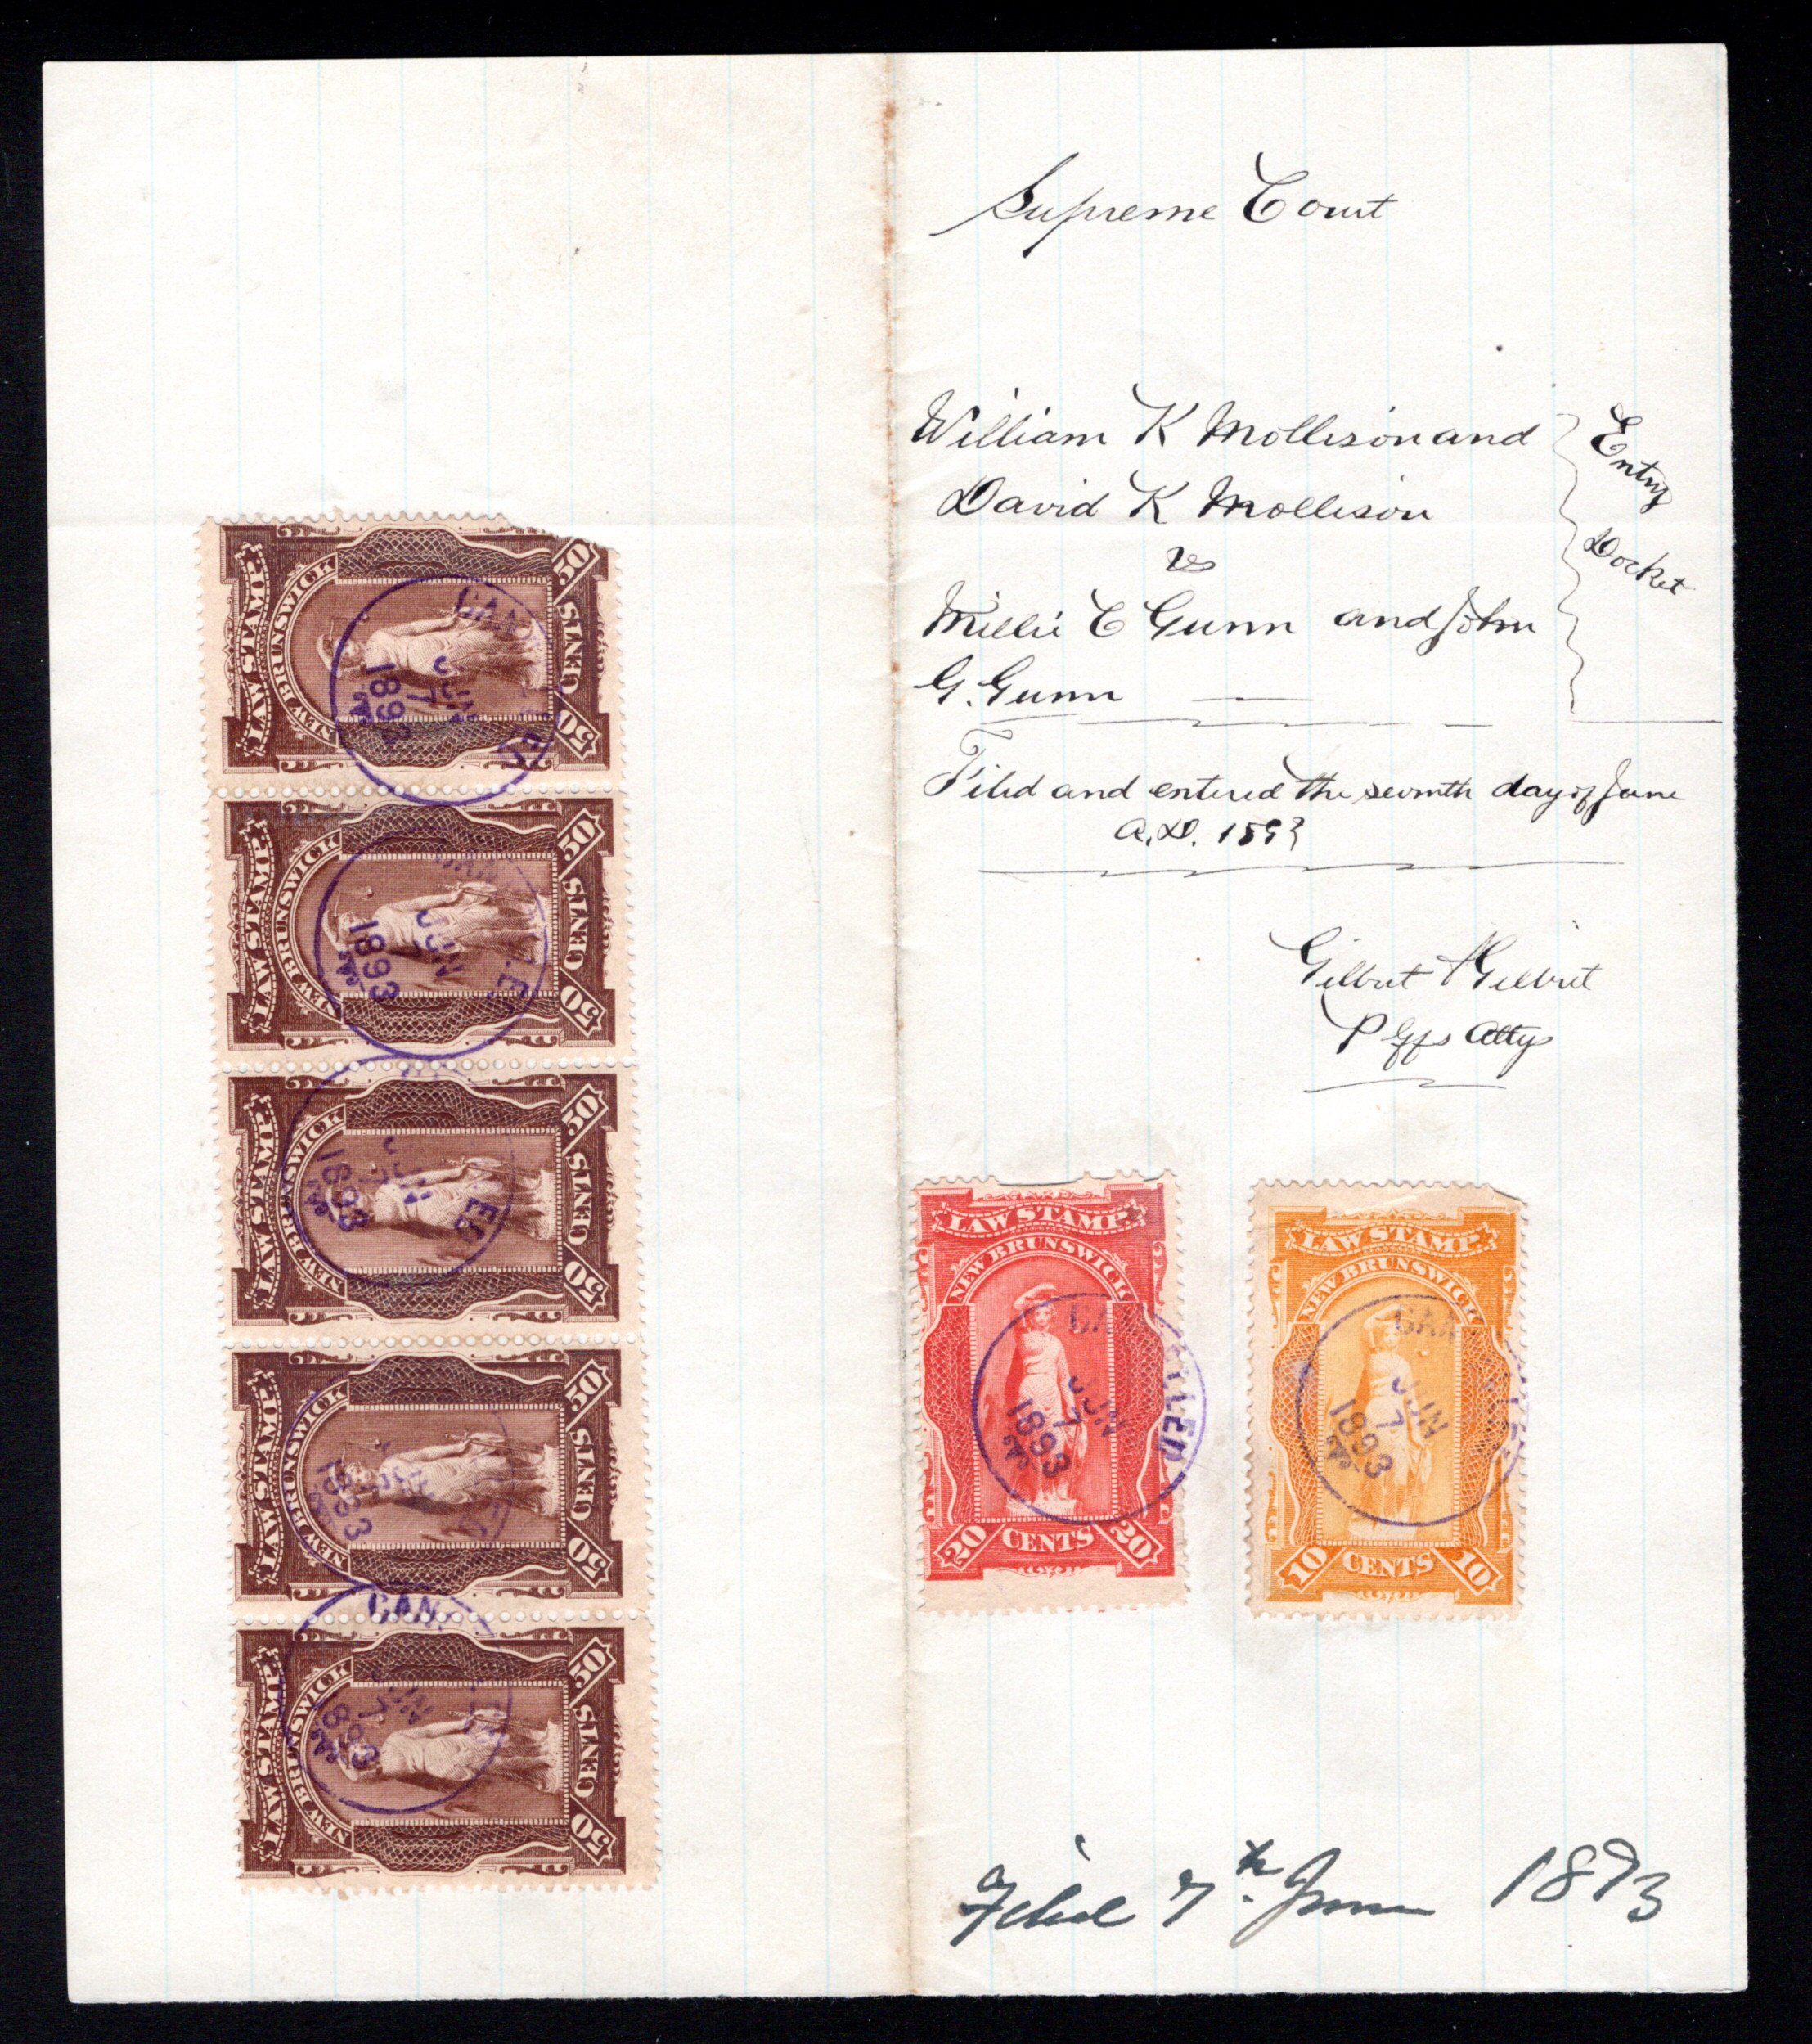 Supreme Court
William K Mollison and
David K Mollison
vs
Millie C Gunn and John
G. Gunn
Entry
Docket
Filed and entered the seventh day of June
A.D. 1893
Gilbert & Gilbert
Plffs Attys
LAW STAMP
NEW BRUNSWICK
CAN
JUN
7
1893
20 CENTS 20
LAW STAMP
NEW BRUNSWICK
CAN
JUN
7
1893
10 CENTS 10
Filed 7th June 1893
LAW STAMP
NEW BRUNSWICK
CAN
JUN
7
1893
50 CENTS 50
LAW STAMP
NEW BRUNSWICK
JUN
1893
50 CENTS 50
LAW STAMP
NEW BRUNSWICK
7
1893
50 CENTS 50
LAW STAMP
NEW BRUNSWICK
1893
50 CENTS 50
LAW STAMP
NEW BRUNSWICK
CAN
JUN
7
1893
50 CENTS 50